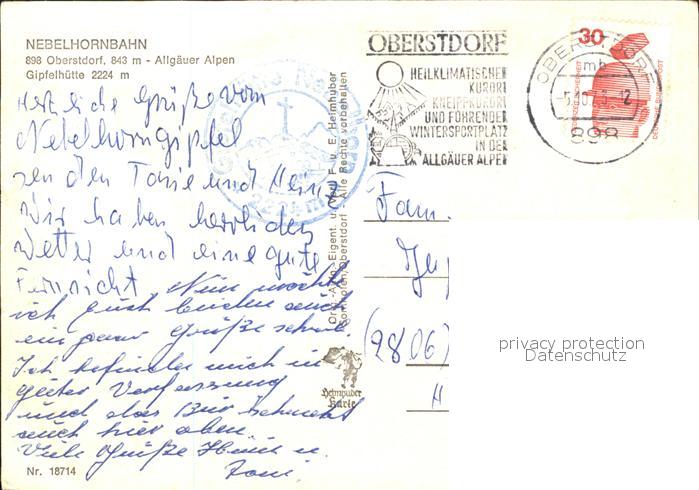 NEBELHORNBAHN
898 Oberstdorf, 843 m - Allgäuer Alpen
Gipfelhütte 2224 m
Herzliche Grüße vom
Nebelhorngipfel
senden Tonie und Heinz
Wir haben herrliches
Wetter und eine gute
Fernsicht. Nun möchte
ich Euch beiden auch
ein paar Grüße schreib.
Ich befinde mich in
guter Verfassung
und das Bier schmeckt
auch hier oben.
Viele Grüße Heinz u.
Toni.
Nr. 18714
2224 m
Orig.-Aufn. Eigent. u. Verl. F. u. E. Heimhuber
Sonthofen/Oberstdorf - Alle Rechte vorbehalten
Heimhuber
Karte
OBERSTDORF
HEILKLIMATISCHER
KURORT
KNEIPPKURORT
UND FÜHRENDER
WINTERSPORTPLATZ
IN DER
ALLGÄUER ALPEN
OBERSTDORF
mb
898
30
DEUTSCHE BUNDESPOST
Fam.
(2806)
privacy protection
Datenschutz